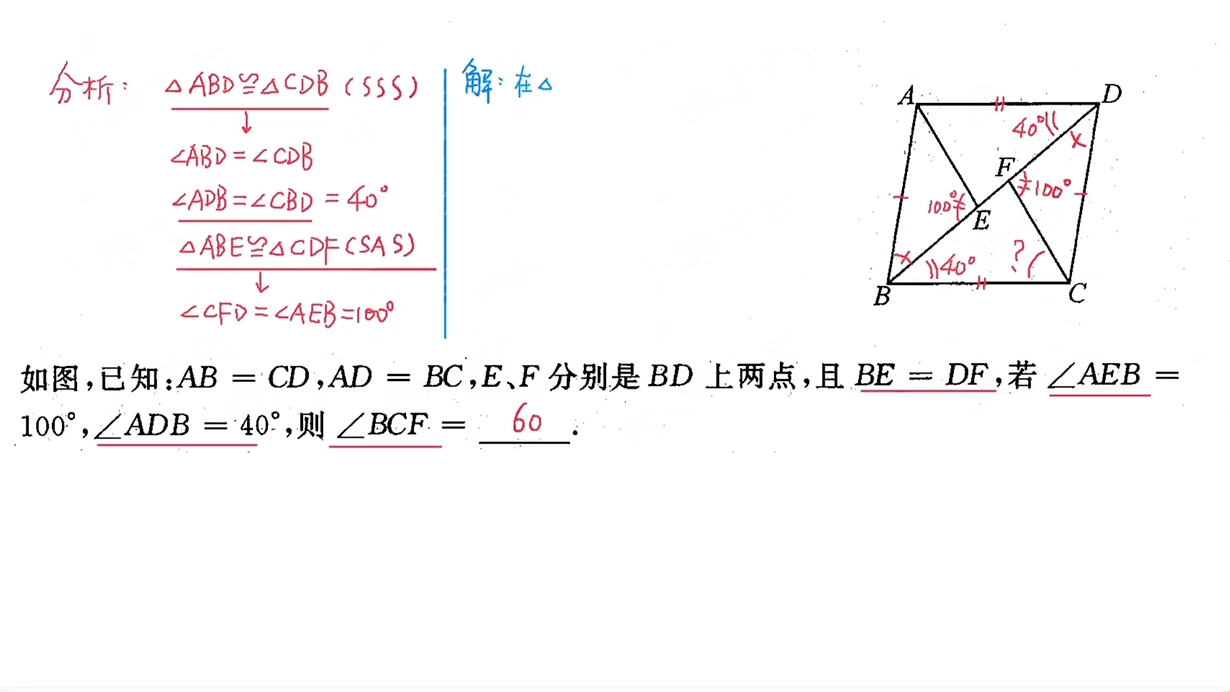 分析: △ABD≌△CDB (SSS)
↓
∠ABD=∠CDB
∠ADB=∠CBD = 40°
△ABE≌△CDF(SAS)
↓
∠CFD=∠AEB=100°
解: 在△
A
D
40°
×
F
100°
100°
E
×
40°
?
B
C
如图,已知:AB = CD,AD = BC,E、F 分别是 BD 上两点,且 BE = DF,若 ∠AEB =
100°,∠ADB = 40°,则 ∠BCF = 60.